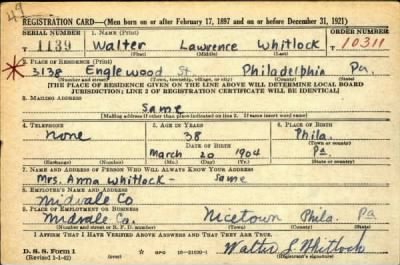 49
REGISTRATION CARD—(Men born on or after February 17, 1897 and on or before December 31, 1921)
SERIAL NUMBER 1. Name (Print) ORDER NUMBER
T 1139 Walter Lawrence Whitlock 10311
(First) (Middle) (Last)
2. Place of Residence (Print)
3138 Englewood St. Philadelphia Pa.
(Number and street) (Town, township, village, or city) (County) (State)
[THE PLACE OF RESIDENCE GIVEN ON THE LINE ABOVE WILL DETERMINE LOCAL BOARD
JURISDICTION; LINE 2 OF REGISTRATION CERTIFICATE WILL BE IDENTICAL]
3. Mailing Address
Same
[Mailing address if other than place indicated on line 2. If same insert word same]
4. Telephone 5. Age in Years 6. Place of Birth
none 38 Phila.
Date of Birth (Town or county)
March 20 1904 Pa.
(Exchange) (Number) (Mo.) (Day) (Yr.) (State or country)
7. Name and Address of Person Who Will Always Know Your Address
Mrs. Anna Whitlock - same
8. Employer's Name and Address
Midvale Co
9. Place of Employment or Business
Midvale Co. Nicetown Phila. Pa
(Number and street or R. F. D. number) (Town) (County) (State)
I Affirm That I Have Verified Above Answers and That They Are True.
D. S. S. Form 1
(Revised 1-1-42) GPO 16—21630-1 (Registrant's signature)
Walter L Whitlock